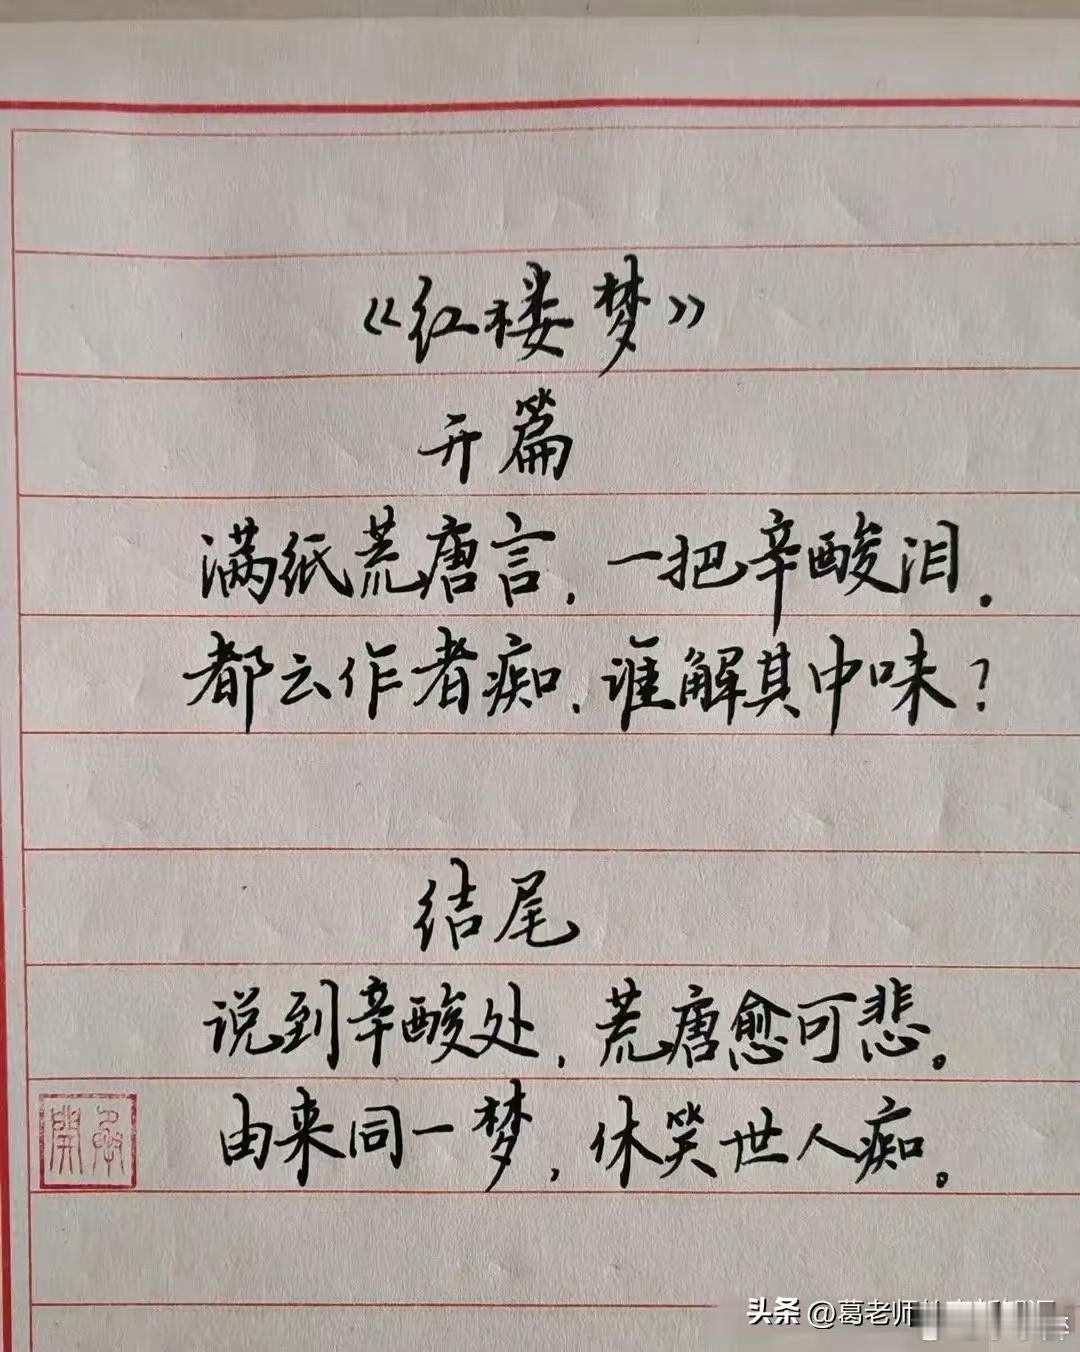 《红楼梦》
开篇
满纸荒唐言，一把辛酸泪。
都云作者痴，谁解其中味？
结尾
说到辛酸处，荒唐愈可悲。
由来同一梦，休笑世人痴。
头条 @葛老师